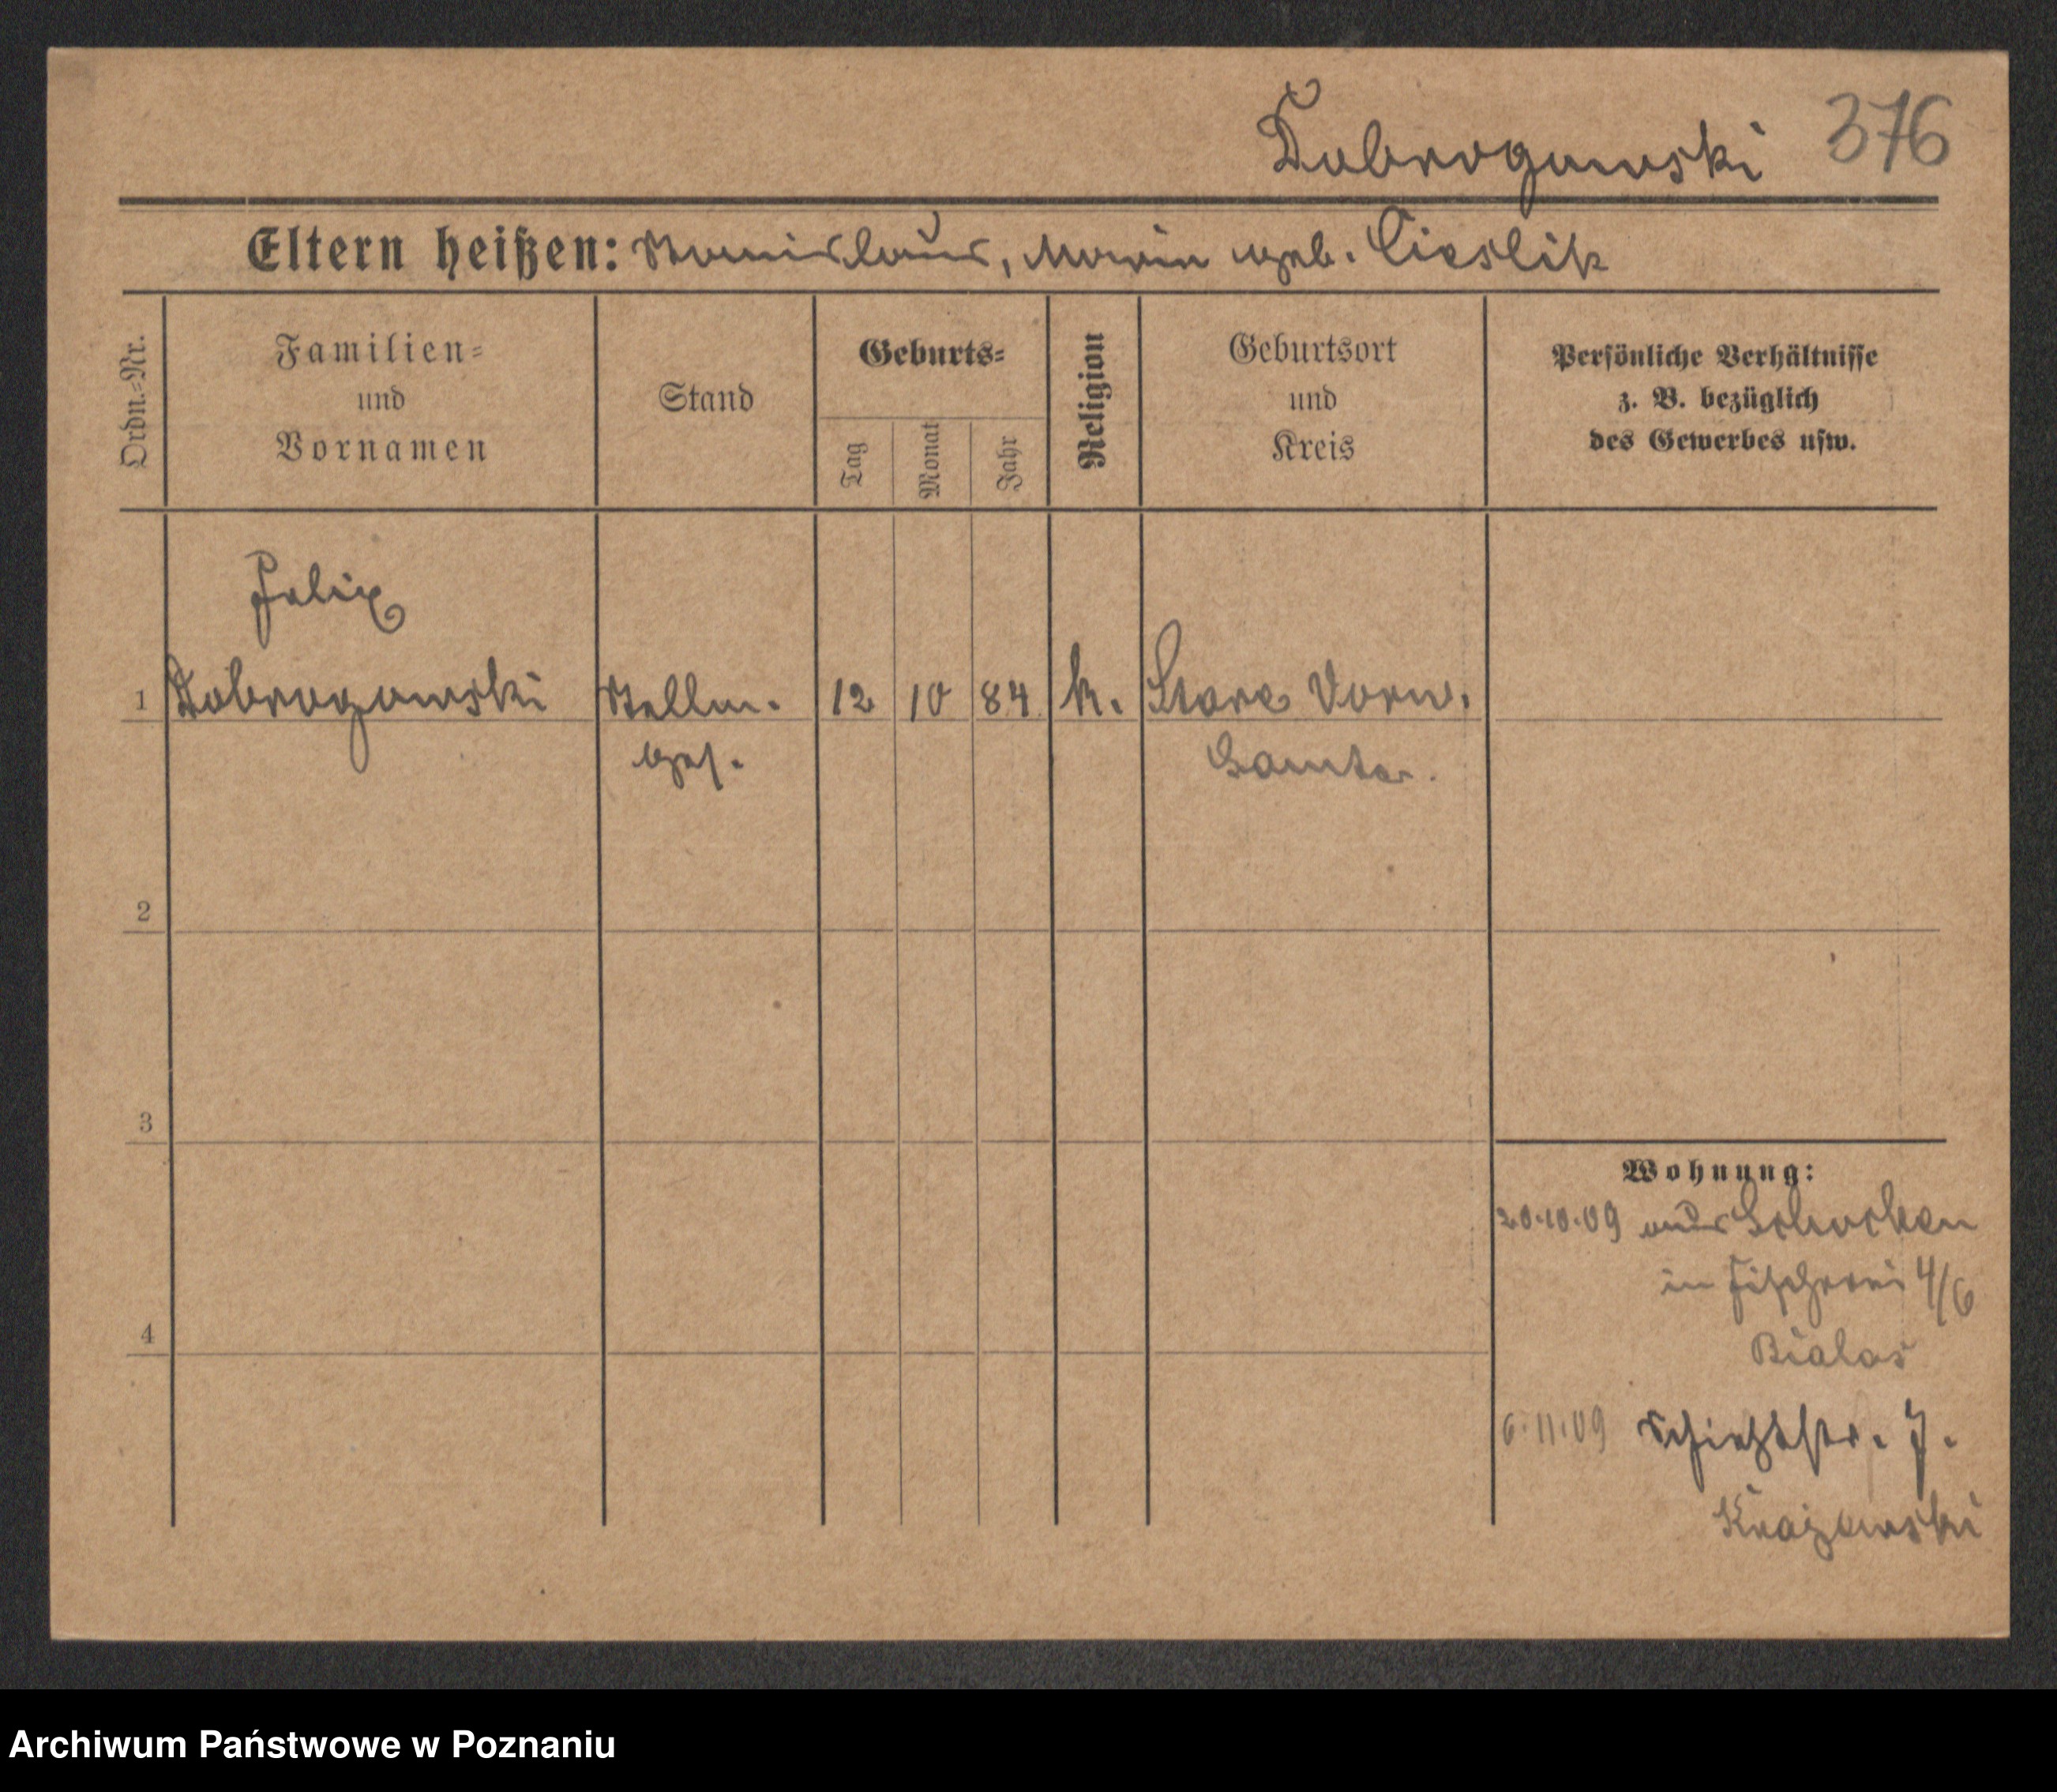 Dobrogowski 376
Eltern heißen: Stanislaus, Maria geb. Cieslik
Ordn.-Nr.
Familien-
und
Vornamen
Stand
Geburts-
Tag
Monat
Jahr
Religion
Geburtsort
und
Kreis
Persönliche Verhältnisse
z. B. bezüglich
des Gewerbes usw.
Felix
1 Dobrogowski Stellm. 12 10 84 k. Vorw.
ges. Samter.
2
3
4
Wohnung:
20.10.09 aus Schocken
in Fischerei 4/6
Bialas
6.11.09 Schießstr. 7.
Archiwum Państwowe w Poznaniu